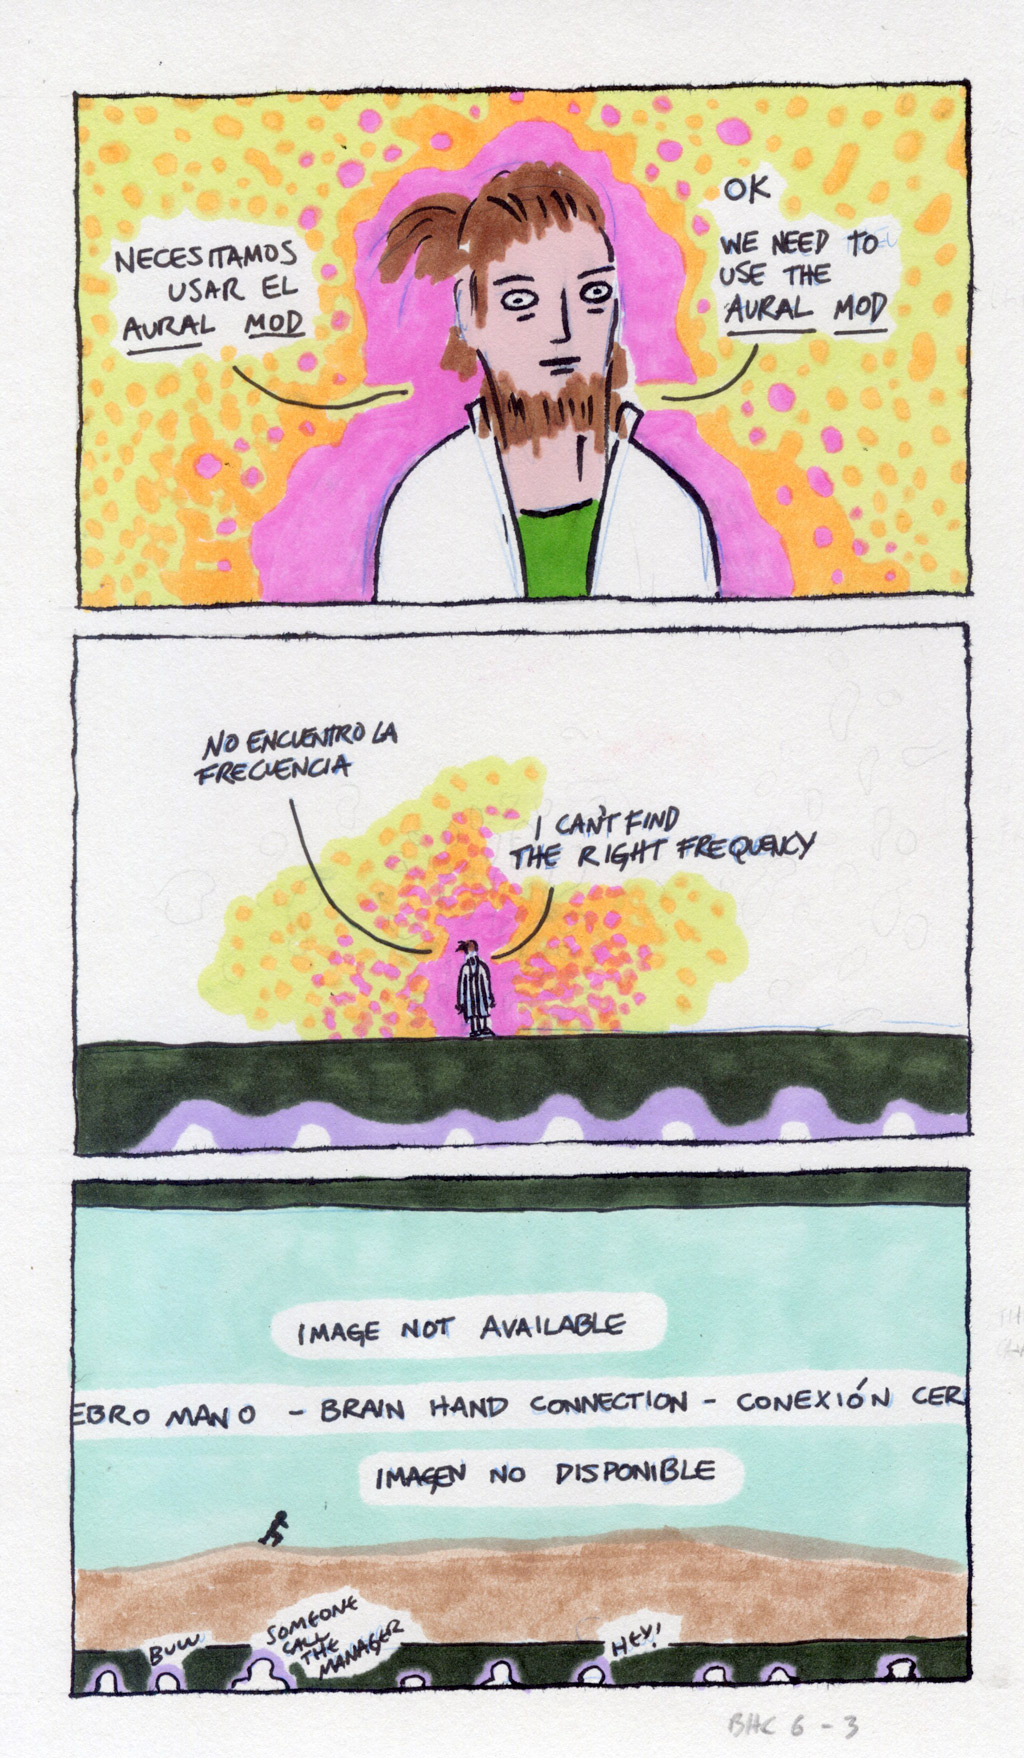 NECESITAMOS
USAR EL
AURAL MOD
OK
WE NEED TO
USE THE
AURAL MOD
NO ENCUENTRO LA
FRECUENCIA
I CAN'T FIND
THE RIGHT FREQUENCY
IMAGE NOT AVAILABLE
EBRO MANO - BRAIN HAND CONNECTION - CONEXIÓN CER
IMAGEN NO DISPONIBLE
SOMEONE
CALL
THE
MANAGER
HEY!
BHC 6-3